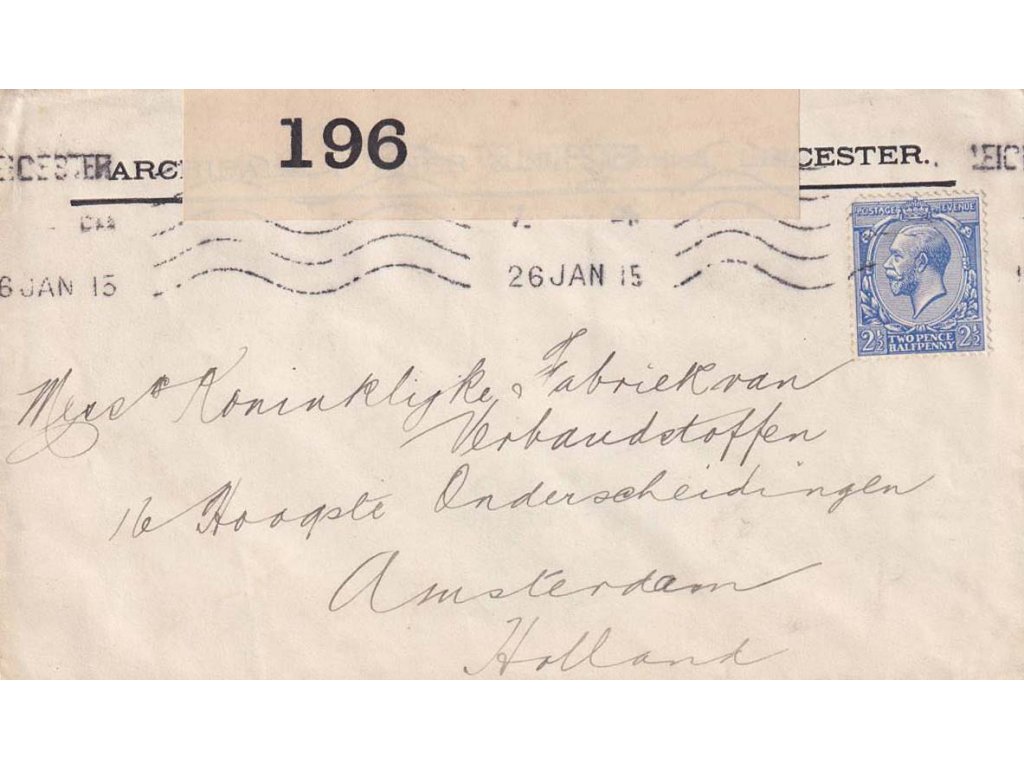 196
LEICESTER ARC CESTER. LEIC
26 JAN 15 26 JAN 15
POSTAGE REVENUE
2½ TWO PENCE HALFPENNY 2½
Messrs Koninklijke Fabriek van
Verbandstoffen
16 Hoogste Onderscheidingen
Amsterdam
Holland